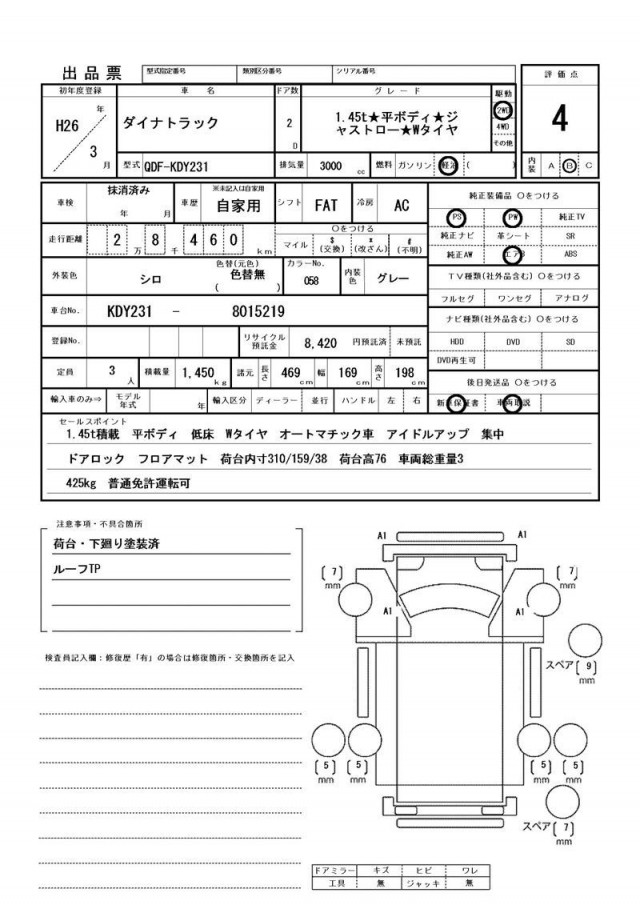 出品票 型式指定番号 類別区分番号 シリアル番号
評価点
4
初年度登録 車名 ドア数 グレード 駆動
H26年 3月 ダイナトラック 2D 1.45t★平ボディ★ジャストロー★Wタイヤ 2WD 4WD その他
型式 QDF-KDY231 排気量 3000cc 燃料 ガソリン 軽油 ( ) 内装 A B C
車検 抹消済み 年 月 車歴 ※未記入は自家用 自家用 シフト FAT 冷房 AC
純正装備品 〇をつける
PS PW 純正TV
純正ナビ 革シート SR
純正AW ABS
走行距離 2万8千460km 〇をつける マイル $(交換) *(改ざん) #(不明)
外装色 シロ 色替(元色) 色替無 ( ) カラーNo. 058 内装色 グレー
TV種類(社外品含む) 〇をつける
フルセグ ワンセグ アナログ
ナビ種類(社外品含む) 〇をつける
HDD DVD SD
DVD再生可
車台No. KDY231 - 8015219
登録No. リサイクル預託金 8,420 円預託済 未預託
定員 3人 積載量 1,450kg 諸元 長さ 469cm 幅 169cm 高さ 198cm
後日発送品 〇をつける
新車保証書 車両取説
輸入車のみ⇒ モデル年式 年 輸入区分 ディーラー 並行 ハンドル 左 右
セールスポイント
1.45t積載 平ボディ 低床 Wタイヤ オートマチック車 アイドルアップ 集中
ドアロック フロアマット 荷台内寸310/159/38 荷台高76 車両総重量3
425kg 普通免許運転可
注意事項・不具合箇所
荷台・下廻り塗装済
ルーフTP
検査員記入欄：修復歴「有」の場合は修復箇所・交換箇所を記入
A1 A1
(7)mm (7)mm
A1 A1
スペア(9)mm
(5)mm (5)mm (5)mm (5)mm
スペア(7)mm
ドアミラー キズ ヒビ ワレ
工具 無 ジャッキ 無